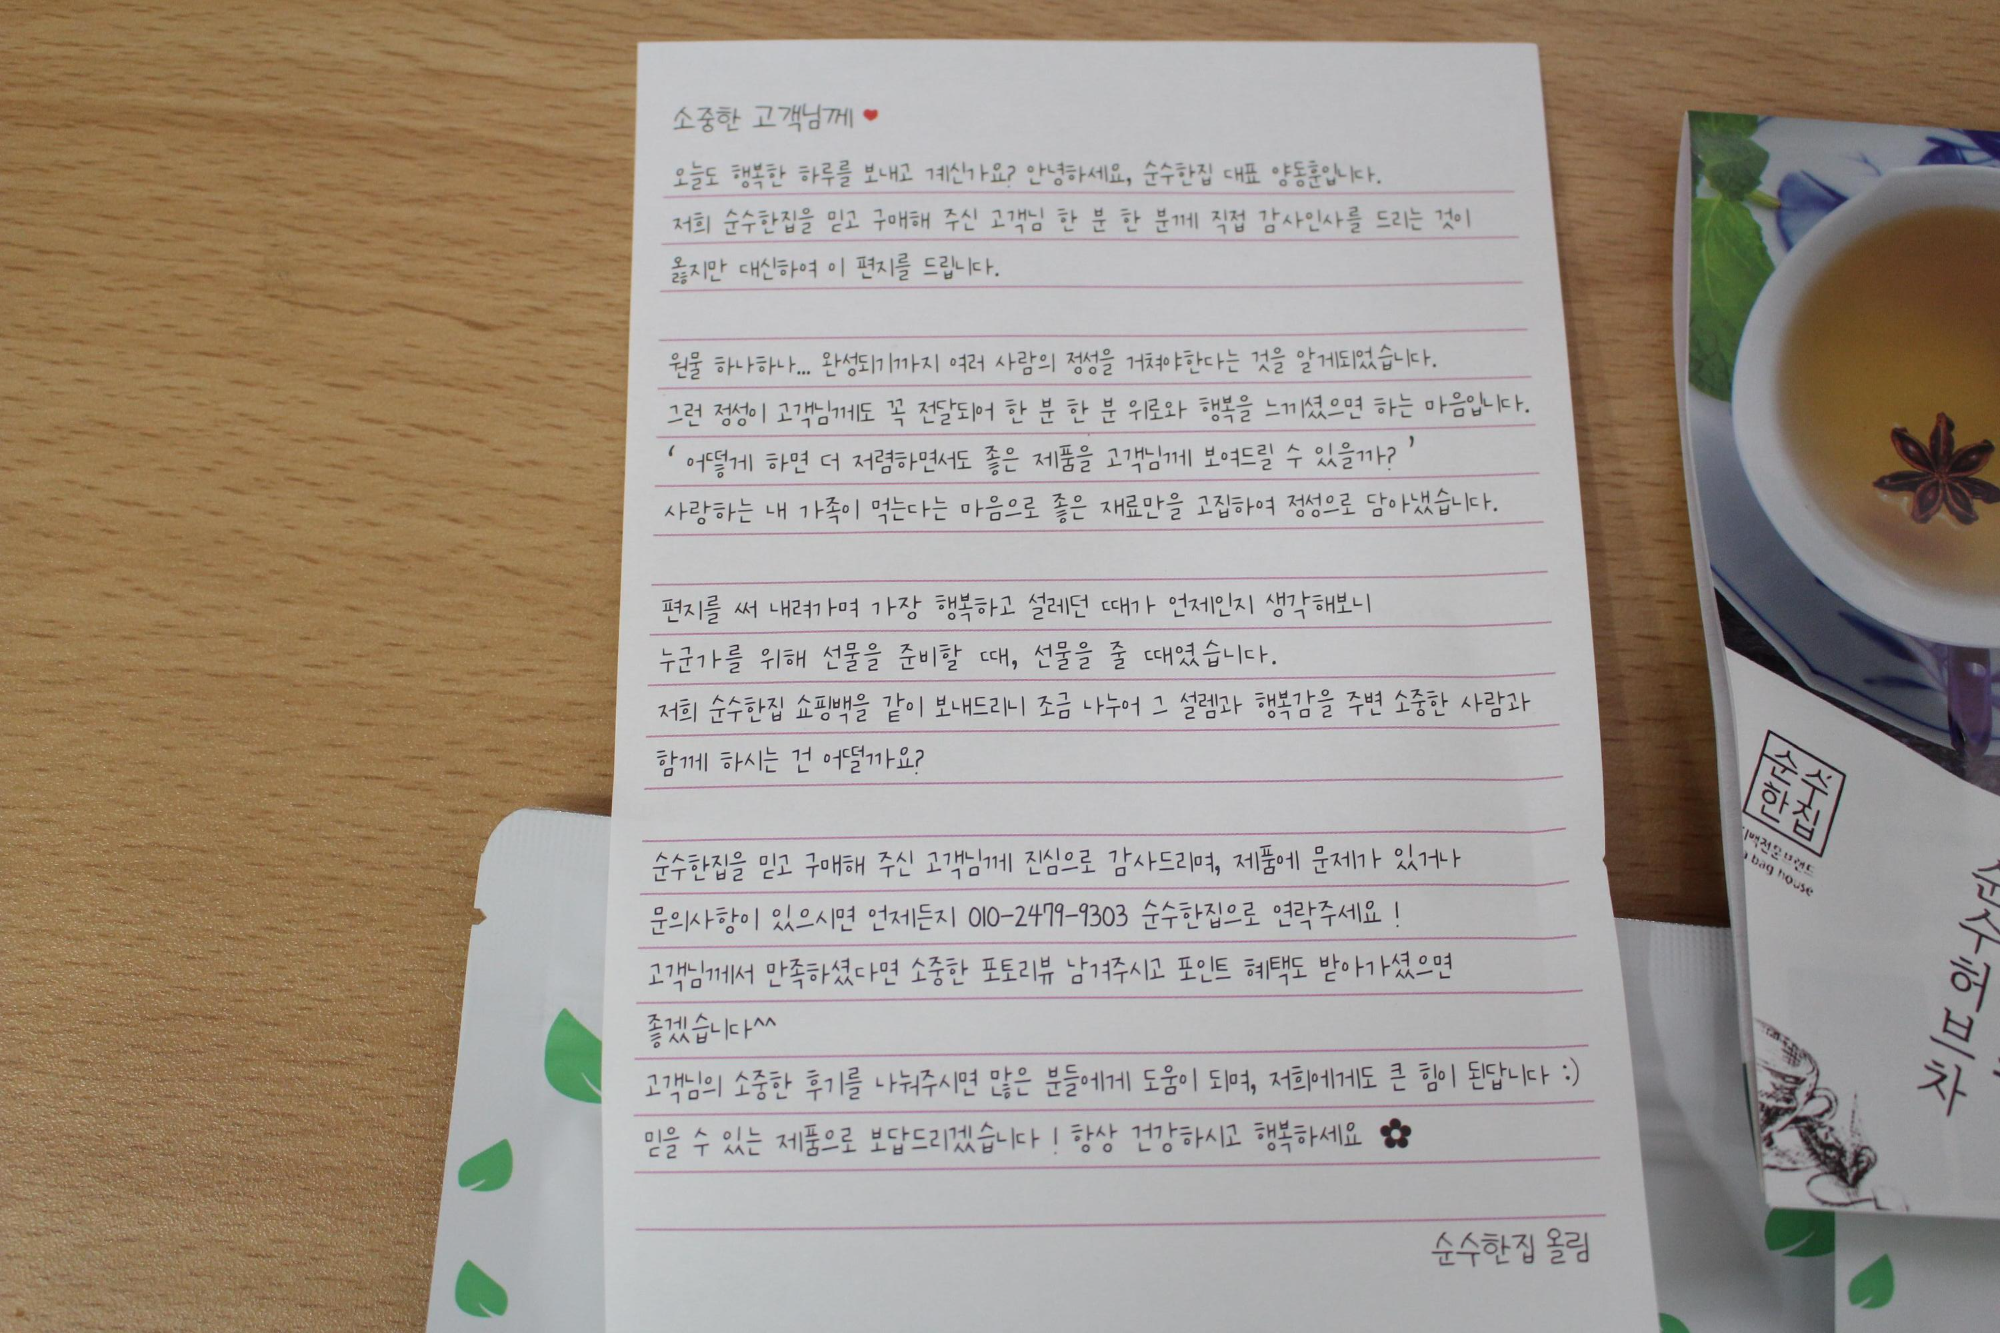 소중한 고객님께❤
오늘도 행복한 하루를 보내고 계신가요? 안녕하세요, 순수한집 대표 양동훈입니다.
저희 순수한집을 믿고 구매해 주신 고객님 한 분 한 분께 직접 감사인사를 드리는 것이
옳지만 대신하여 이 편지를 드립니다.
원물 하나하나... 완성되기까지 여러 사람의 정성을 거쳐야한다는 것을 알게되었습니다.
그런 정성이 고객님께도 꼭 전달되어 한 분 한 분 위로와 행복을 느끼셨으면 하는 마음입니다.
' 어떻게 하면 더 저렴하면서도 좋은 제품을 고객님께 보여드릴 수 있을까? '
사랑하는 내 가족이 먹는다는 마음으로 좋은 재료만을 고집하여 정성으로 담아냈습니다.
편지를 써 내려가며 가장 행복하고 설레던 때가 언제인지 생각해보니
누군가를 위해 선물을 준비할 때, 선물을 줄 때였습니다.
저희 순수한집 쇼핑백을 같이 보내드리니 조금 나누어 그 설렘과 행복감을 주변 소중한 사람과
함께 하시는 건 어떨까요?
순수한집을 믿고 구매해 주신 고객님께 진심으로 감사드리며, 제품에 문제가 있거나
문의사항이 있으시면 언제든지 010-2479-9303 순수한집으로 연락주세요 !
고객님께서 만족하셨다면 소중한 포토리뷰 남겨주시고 포인트 혜택도 받아가셨으면
좋겠습니다^^
고객님의 소중한 후기를 나눠주시면 많은 분들에게 도움이 되며, 저희에게도 큰 힘이 된답니다 :)
믿을 수 있는 제품으로 보답드리겠습니다 ! 항상 건강하시고 행복하세요 ✿
순수한집 올림
순수
한집
티백전문브랜드
bag house
순수허브차